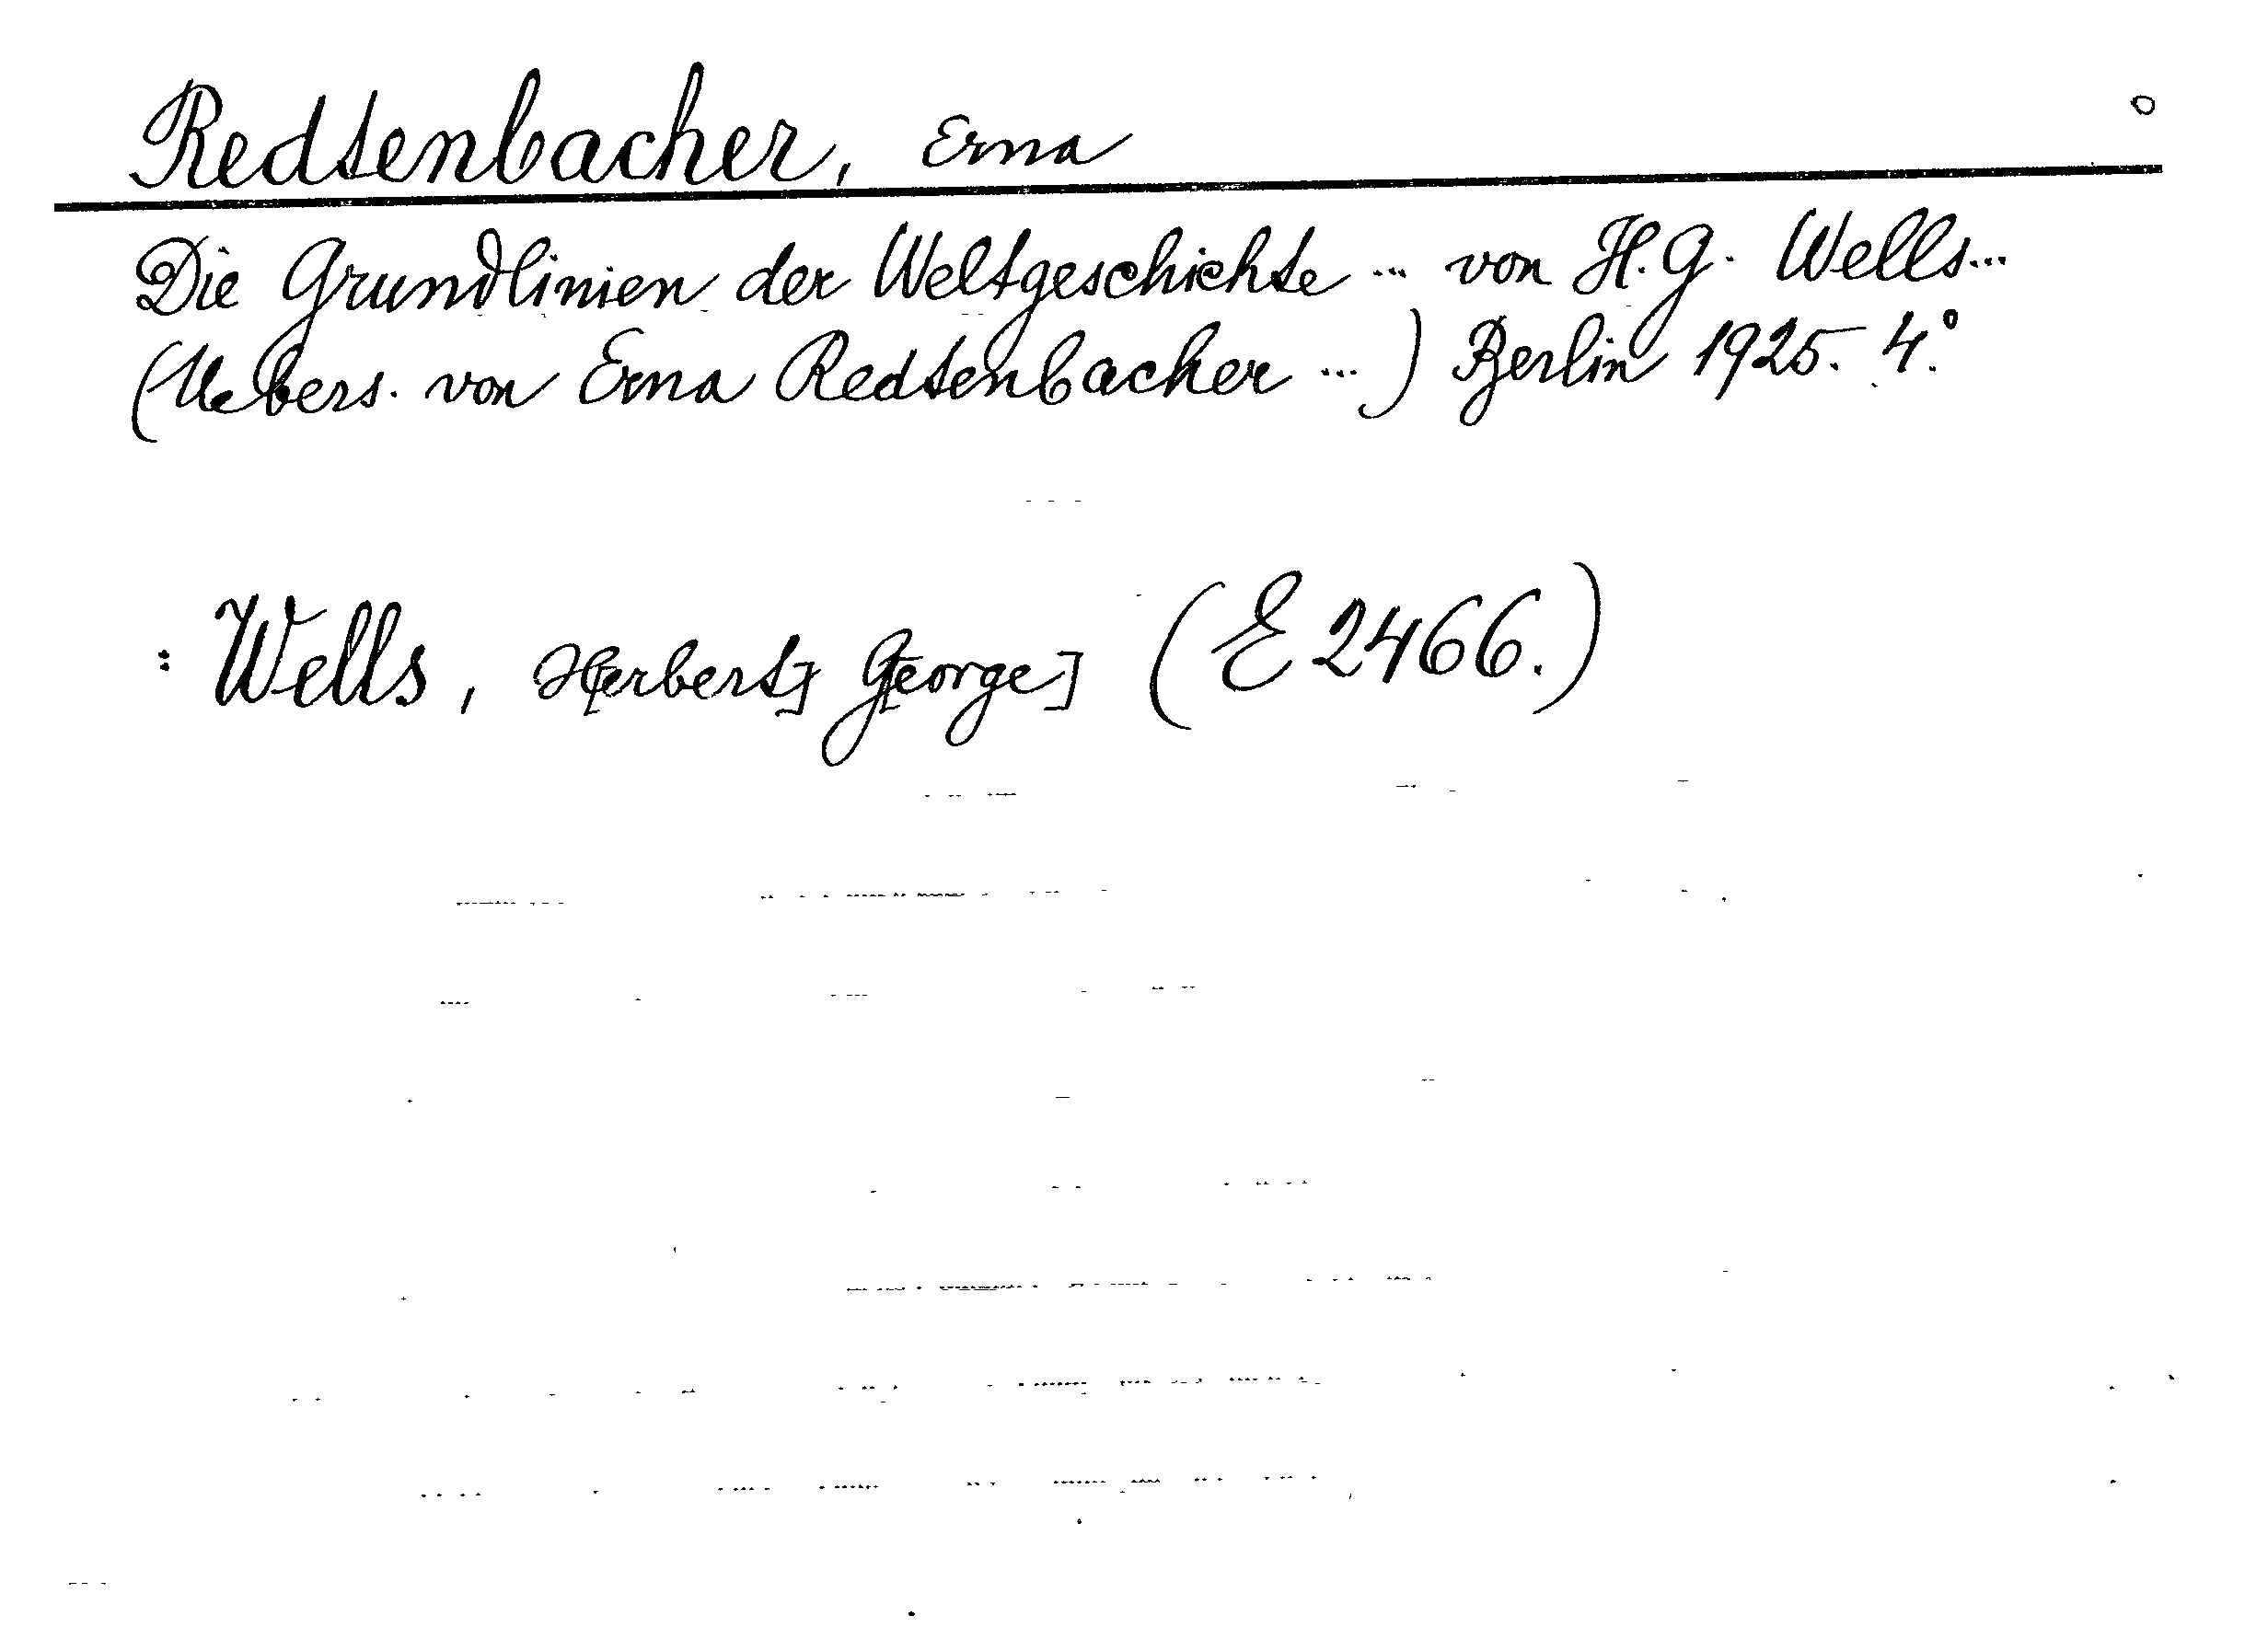 Redtenbacher, Erna
Die Grundlinien der Weltgeschichte ... von H. G. Wells ...
(Uebers. von Erna Redtenbacher ...) Berlin 1925. 4.°
: Wells, H[erbert] G[eorge] (E 2466.)